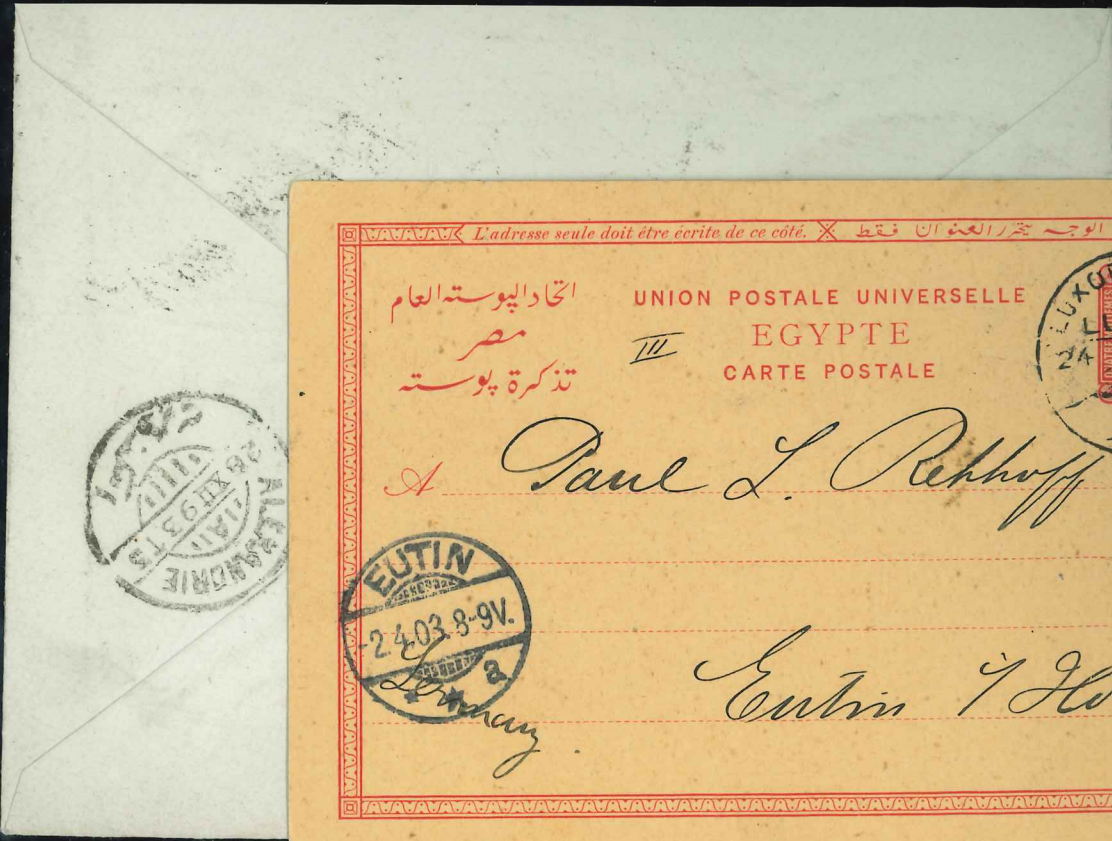 L'adresse seule doit être écrite de ce côté. الوجه يحرر العنوان فقط
اتحاد البوسته العام
مصر
تذكرة بوسته
UNION POSTALE UNIVERSELLE
EGYPTE
CARTE POSTALE
III
LUXOR
24
A Paul L. Rehhoff
EUTIN
-2.4.03.8-9V.
a
Eutin i/Ho
Germany.
ALEXANDRIE
26 XII 93 T5